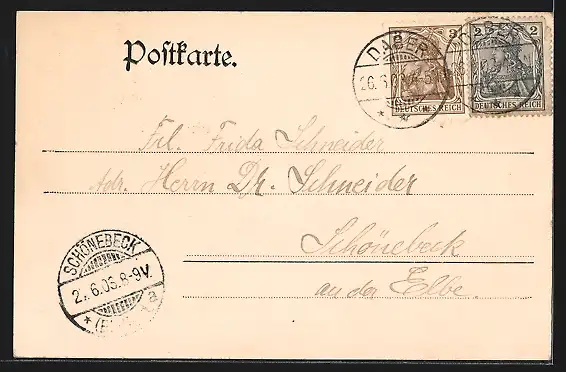 Postkarte.
DABER
DABER
3
2
2
DEUTSCHES REICH
DEUTSCHES REICH
Frl. Frida Schneider
Adr. Herrn Dr. Schneider
Schönebeck
an der Elbe.
SCHÖNEBECK
6.06.8-9V.
a